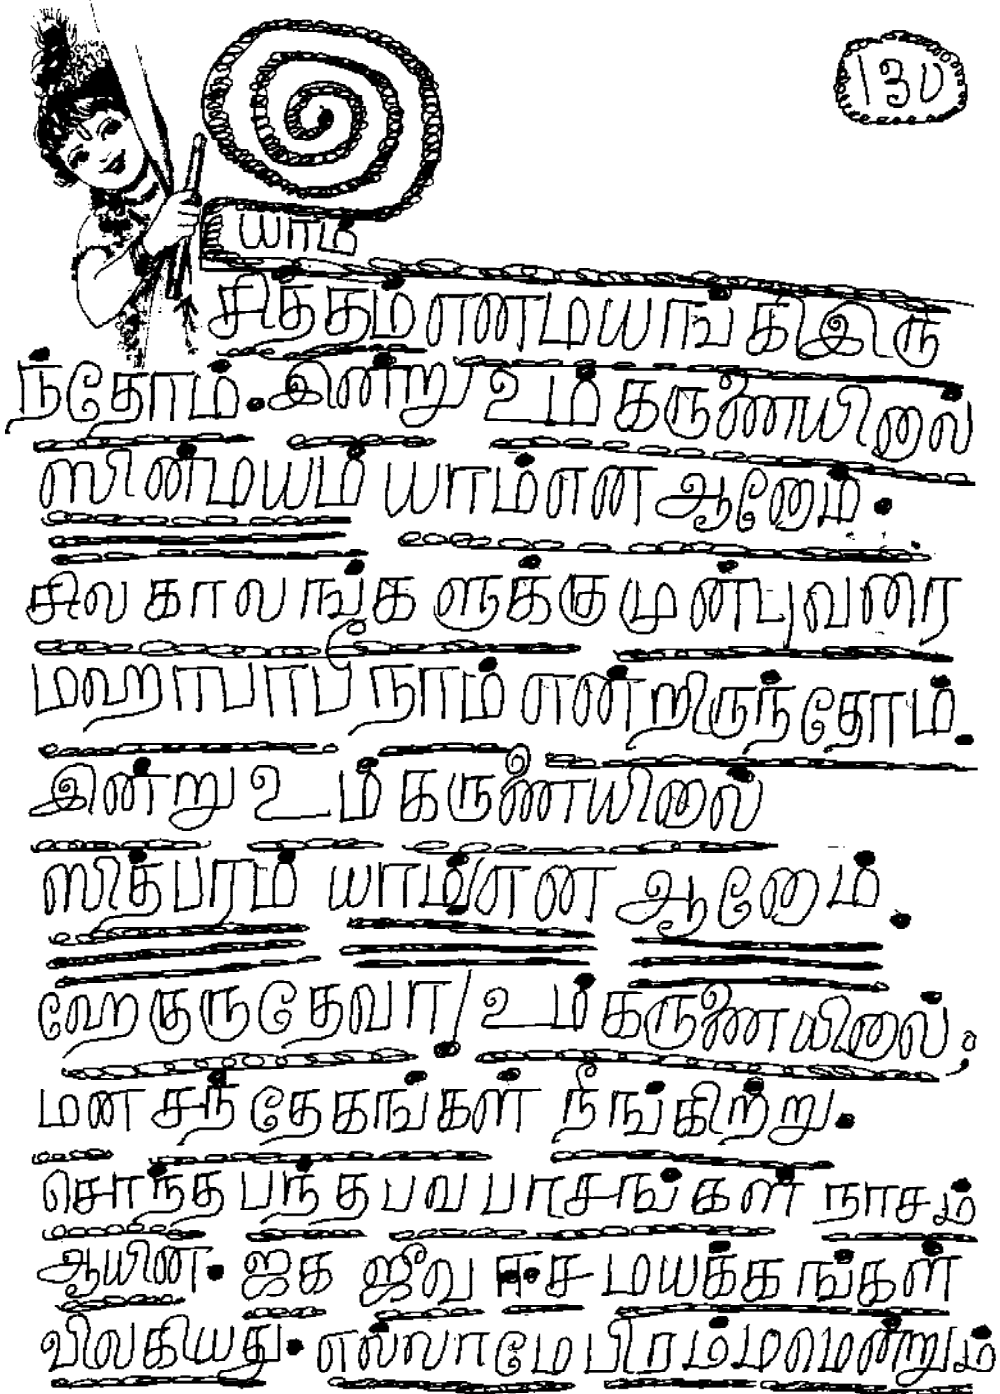 130
யாம்
சித்தம்எனமயங்கிஇரு
ந்தோம். இன்று உம் கருணையிலை
ஸின்மயம் யாம்என ஆனேம்.
சில காலங்களுக்கு முன்புவரை
மஹாபாபீ நாம் என்றிருந்தோம்.
இன்று உம் கருணையிலை
ஸித்பரம் யாம்என ஆனேம்.
ஹேகுருதேவா! உம் கருணையிலை,
மன சந்தேகங்கள் நீங்கிற்று.
சொந்த பந்த பவ பாசங்கள் நாசம்
ஆயின. ஜக ஜீவ ஈச மயக்கங்கள்
விலகியது. எல்லாமே பிரம்மமென்றும்